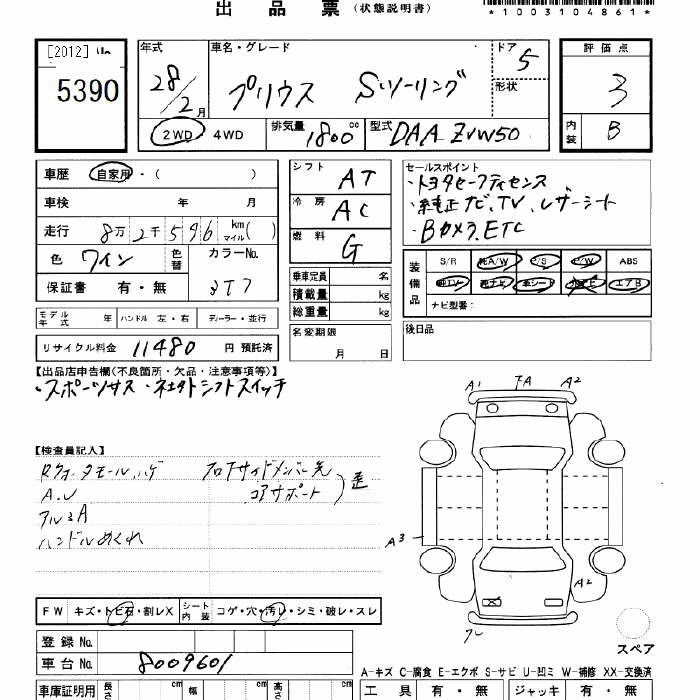 出品票 (状態説明書)
*1003104861*
[2012]
5390
年式 車名・グレード ドア 評価点
28/2月 プリウス Sツーリング 5 3
形状
2WD 4WD 排気量 1800 cc 型式 DAA ZVW50 内装 B
車歴 自家用・( )
車検 年 月
走行 8万2千596 km マイル( )
色 ワイン 色替 カラーNo. 3T7
保証書 有・無
シフト AT
冷房 AC
燃料 G
乗車定員 名
積載量 kg
総重量 kg
セールスポイント
・トヨタセーフティセンス
・純正ナビ、TV、レザーシート
・Bカメラ、ETC
装備品 S/R 純A/W P/S P/W ABS
純TV 純ナビ 本シート エアB
ナビ型番:
モデル年式 年 ハンドル 左・右 ディーラー・並行
名変期限 月 日
後日品
リサイクル料金 11480 円 預託済
【出品店申告欄(不良箇所・欠品・注意事項等)】
・スポーツサス
A1 FA A2
【検査員記入】
Rクォータモールハゲ フロアサイドメンバー先
A.U コアサポート 歪
アルミA
ハンドルめくれ
A3
A2
FW キズ・トビ石・割レX シート内装 コゲ・穴・汚レ・シミ・破レ・スレ
スペア
登録No.
車台No. 8009601
A-キズ C-腐食 E-エクボ S-サビ U-凹ミ W-補修 XX-交換済
車庫証明用 長さ cm 幅 cm 高さ cm 工具 有・無 ジャッキ 有・無